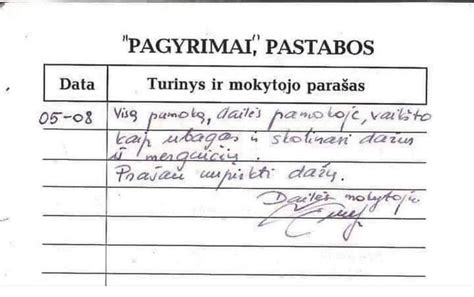 "PAGYRIMAI", PASTABOS
Data Turinys ir mokytojo parašas
05-08 Visą pamoką, dailės pamokoje, vaikšto
kaip ubagas ir skolinasi dažus
iš mergaičių.
Prašau nupirkti dažų.
Dailės mokytoja